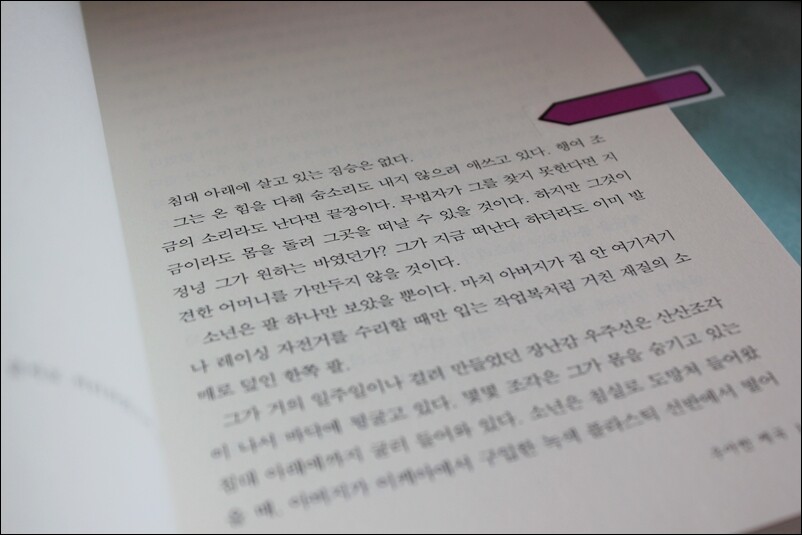 침대 아래에 살고 있는 짐승은 없다.
그는 온 힘을 다해 숨소리도 내지 않으려 애쓰고 있다. 행여 조
금의 소리라도 난다면 끝장이다. 무법자가 그를 찾지 못한다면 지
금이라도 몸을 돌려 그곳을 떠날 수 있을 것이다. 하지만 그것이
정녕 그가 원하는 바였던가? 그가 지금 떠난다 하더라도 이미 발
견한 어머니를 가만두지 않을 것이다.
소년은 팔 하나만 보았을 뿐이다. 마치 아버지가 집 안 여기저기
나 레이싱 자전거를 수리할 때만 입는 작업복처럼 거친 재질의 소
매로 덮인 한쪽 팔.
그가 거의 일주일이나 걸려 만들었던 장난감 우주선은 산산조각
이 나서 바닥에 뒹굴고 있다. 몇몇 조각은 그가 몸을 숨기고 있는
침대 아래에까지 굴러 들어와 있다. 소년은 침실로 도망쳐 들어왔
을 때, 아버지가 이케아에서 구입한 녹색 플라스틱 선반에서 떨어